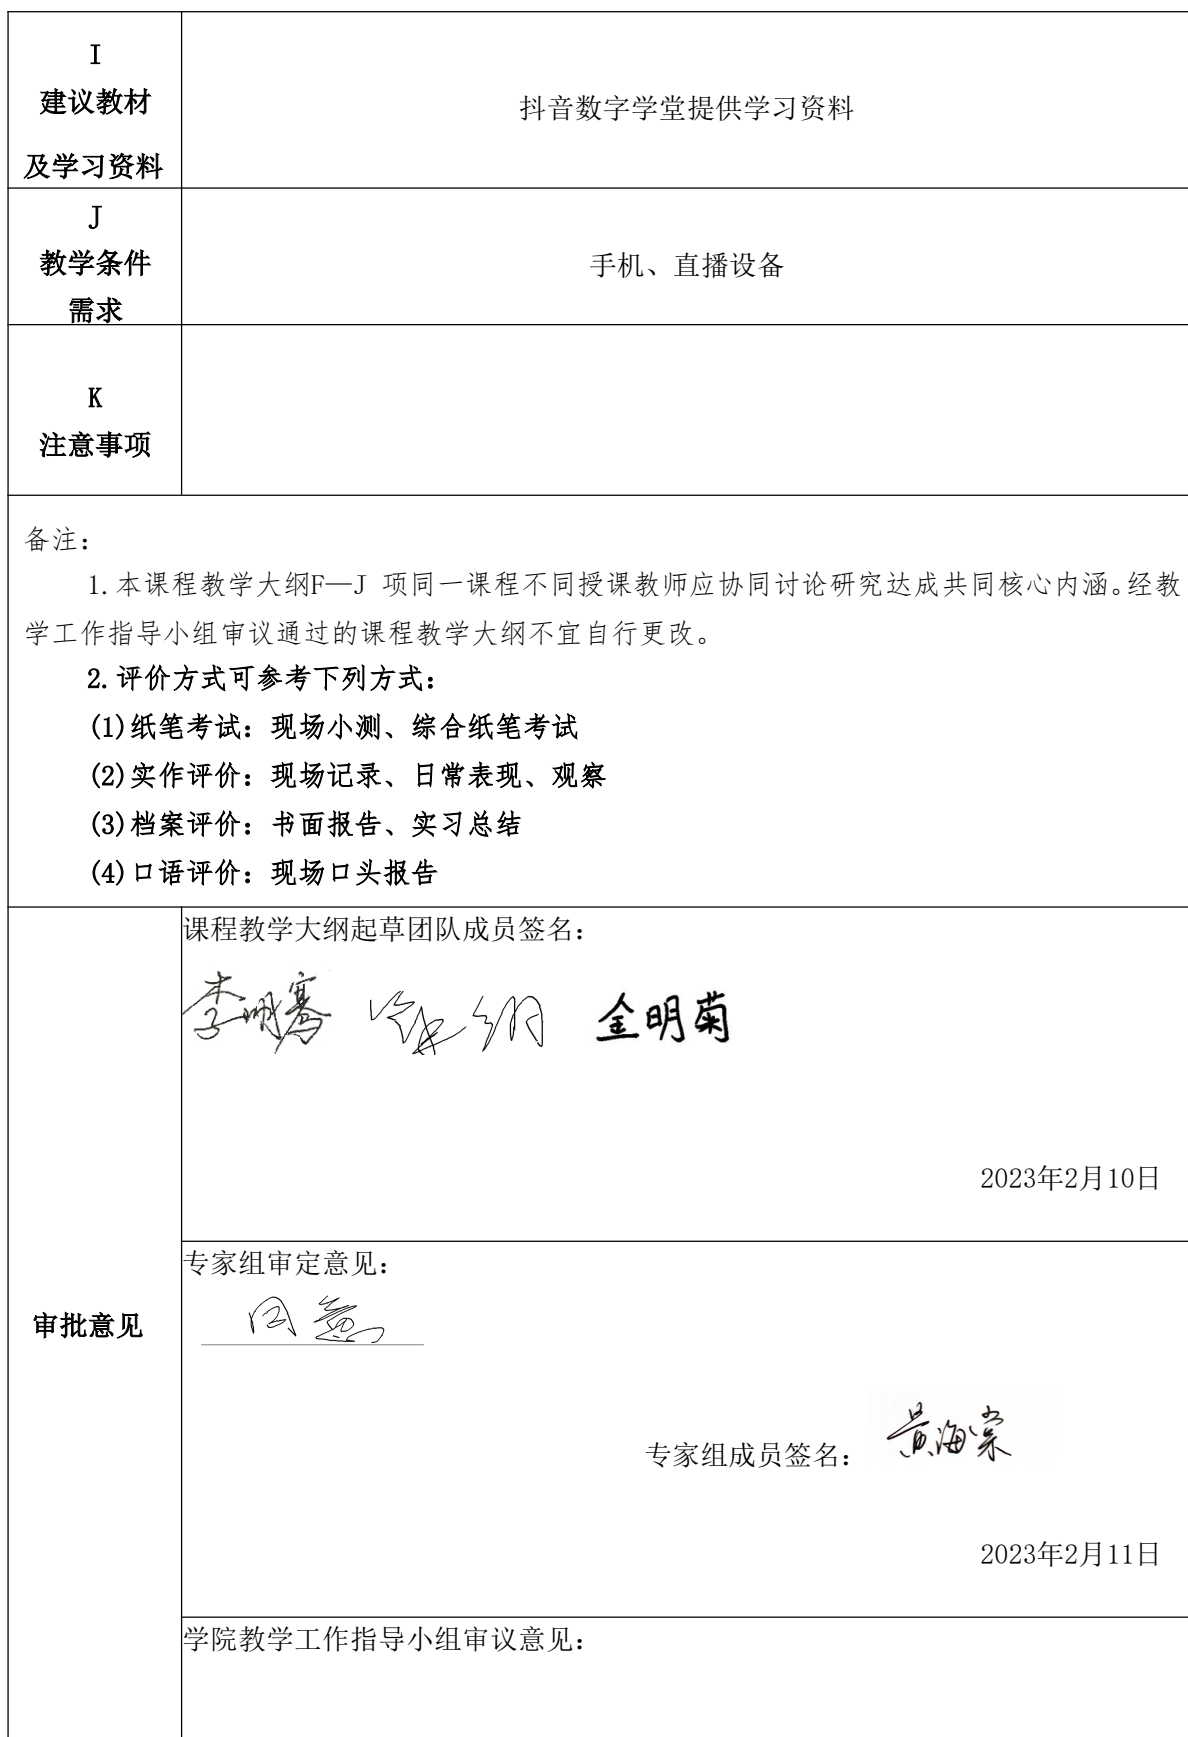 I
建议教材
及学习资料
抖音数字学堂提供学习资料
J
教学条件
需求
手机、直播设备
K
注意事项
备注：
1.本课程教学大纲F—J 项同一课程不同授课教师应协同讨论研究达成共同核心内涵。经教
学工作指导小组审议通过的课程教学大纲不宜自行更改。
2.评价方式可参考下列方式：
(1)纸笔考试：现场小测、综合纸笔考试
(2)实作评价：现场记录、日常表现、观察
(3)档案评价：书面报告、实习总结
(4)口语评价：现场口头报告
审批意见
课程教学大纲起草团队成员签名：
李明骞 金明菊
2023年2月10日
专家组审定意见：
同意
专家组成员签名：黄海棠
2023年2月11日
学院教学工作指导小组审议意见：